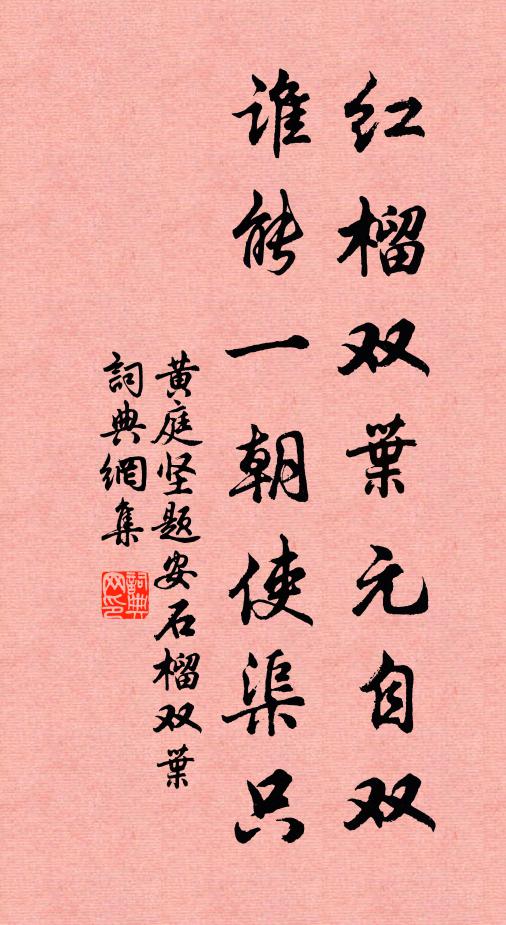 红榴双葉元自双
谁能一朝使渠只
黄庭坚题安石榴双葉
詞典網集
詞典网印